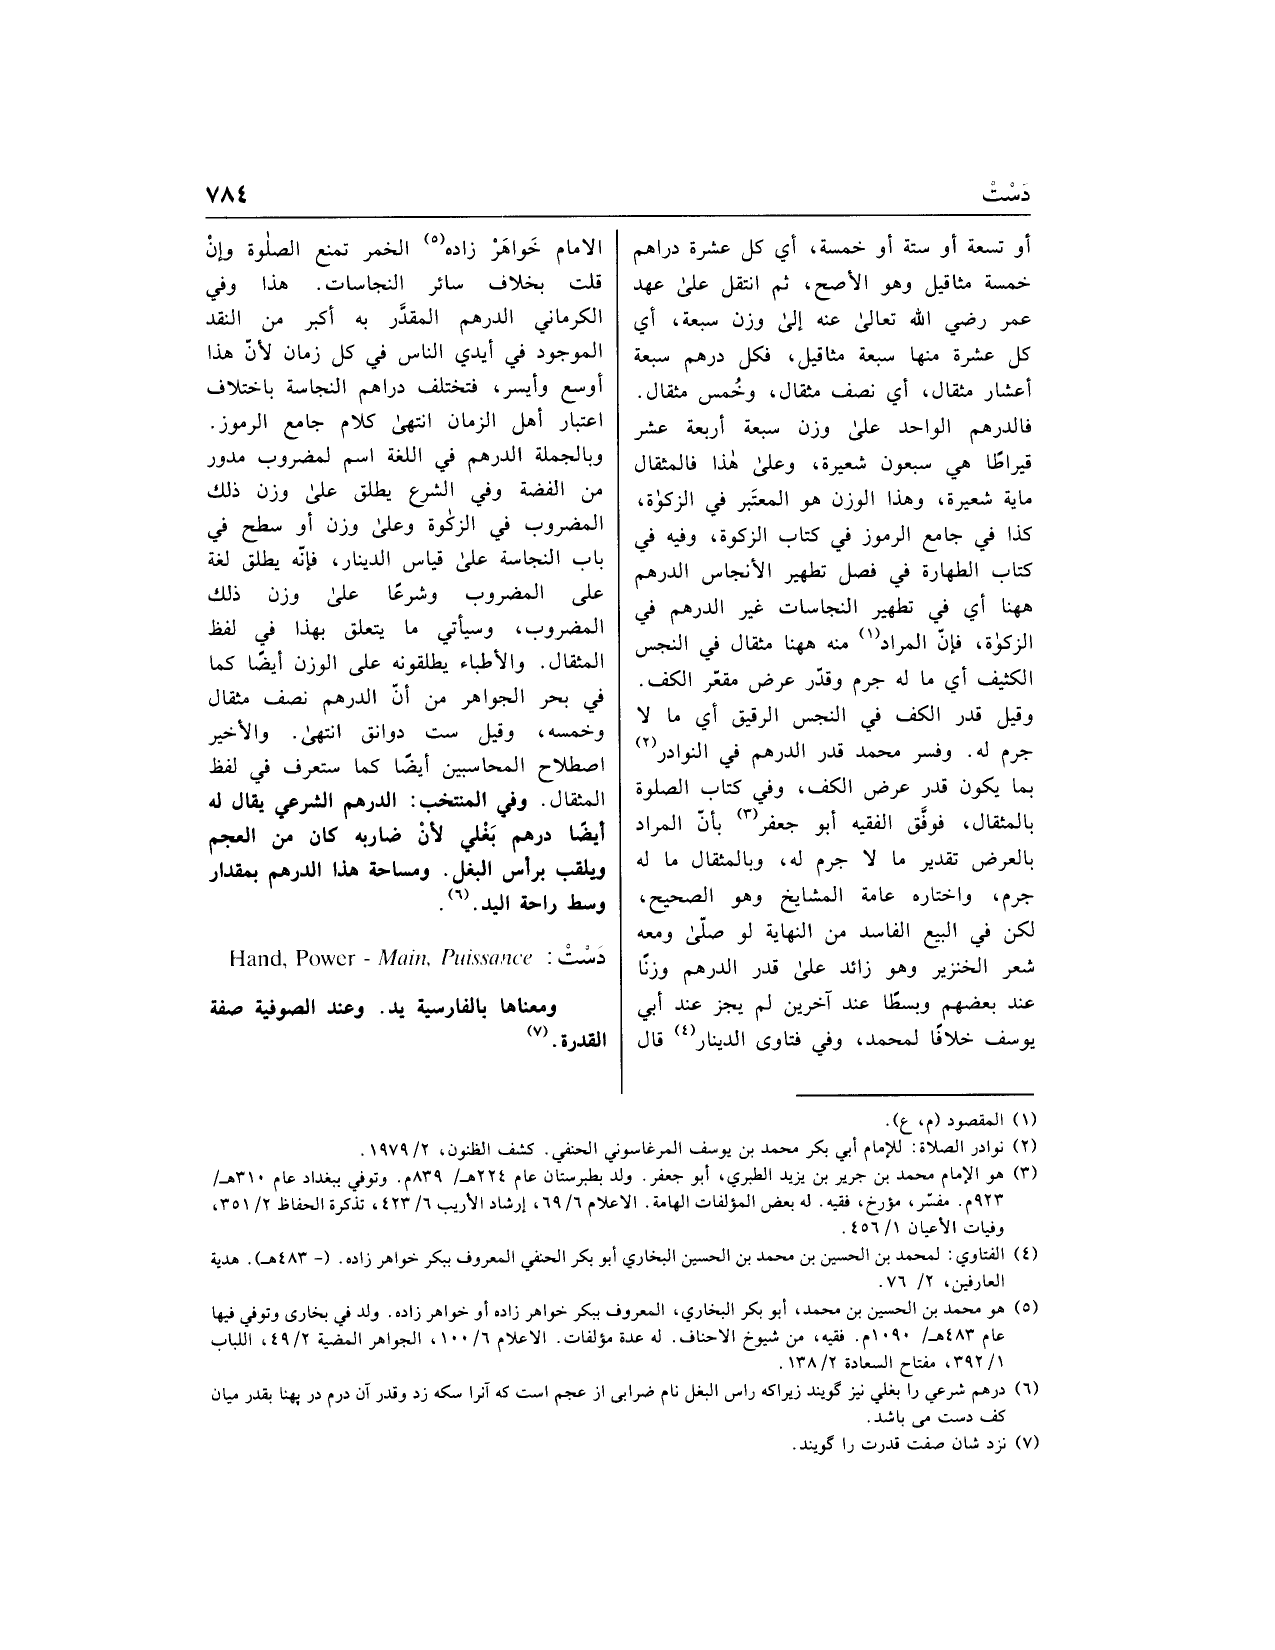 دَسْتْ
٧٨٤
أو تسعة أو ستة أو خمسة، أي كل عشرة دراهم
خمسة مثاقيل وهو الأصح، ثم انتقل علىٰ عهد
عمر رضي الله تعالىٰ عنه إلىٰ وزن سبعة، أي
كل عشرة منها سبعة مثاقيل، فكل درهم سبعة
أعشار مثقال، أي نصف مثقال، وخُمس مثقال.
فالدرهم الواحد علىٰ وزن سبعة أربعة عشر
قيراطًا هي سبعون شعيرة، وعلىٰ هٰذا فالمثقال
ماية شعيرة، وهذا الوزن هو المعتَبر في الزكوٰة،
كذا في جامع الرموز في كتاب الزكوة، وفيه في
كتاب الطهارة في فصل تطهير الأنجاس الدرهم
ههنا أي في تطهير النجاسات غير الدرهم في
الزكوٰة، فإنّ المراد(١) منه ههنا مثقال في النجس
الكثيف أي ما له جرم وقدّر عرض مقعّر الكف.
وقيل قدر الكف في النجس الرقيق أي ما لا
جرم له. وفسر محمد قدر الدرهم في النوادر(٢)
بما يكون قدر عرض الكف، وفي كتاب الصلوة
بالمثقال، فوفَّق الفقيه أبو جعفر(٣) بأنّ المراد
بالعرض تقدير ما لا جرم له، وبالمثقال ما له
جرم، واختاره عامة المشايخ وهو الصحيح،
لكن في البيع الفاسد من النهاية لو صلّىٰ ومعه
شعر الخنزير وهو زائد علىٰ قدر الدرهم وزنًا
عند بعضهم وبسطًا عند آخرين لم يجز عند أبي
يوسف خلافًا لمحمد، وفي فتاوى الدينار(٤) قال
الامام خَواهَرْ زاده(٥) الخمر تمنع الصلٰوة وإنْ
قلت بخلاف سائر النجاسات. هذا وفي
الكرماني الدرهم المقدَّر به أكبر من النقد
الموجود في أيدي الناس في كل زمان لأنّ هذا
أوسع وأيسر، فتختلف دراهم النجاسة باختلاف
اعتبار أهل الزمان انتهىٰ كلام جامع الرموز.
وبالجملة الدرهم في اللغة اسم لمضروب مدور
من الفضة وفي الشرع يطلق علىٰ وزن ذلك
المضروب في الزكٰوة وعلىٰ وزن أو سطح في
باب النجاسة علىٰ قياس الدينار، فإنّه يطلق لغة
على المضروب وشرعًا علىٰ وزن ذلك
المضروب، وسيأتي ما يتعلق بهذا في لفظ
المثقال. والأطباء يطلقونه على الوزن أيضًا كما
في بحر الجواهر من أنّ الدرهم نصف مثقال
وخمسه، وقيل ست دوانق انتهىٰ. والأخير
اصطلاح المحاسبين أيضًا كما ستعرف في لفظ
المثقال. وفي المنتخب: الدرهم الشرعي يقال له
أيضًا درهم بَغْلي لأنْ ضاربه كان من العجم
ويلقب برأس البغل. ومساحة هذا الدرهم بمقدار
وسط راحة اليد.(٦).
دَسْتْ: Hand, Power - Main, Puissance
ومعناها بالفارسية يد. وعند الصوفية صفة
القدرة.(٧)
(١) المقصود (م، ع).
(٢) نوادر الصلاة: للإمام أبي بكر محمد بن يوسف المرغاسوني الحنفي. كشف الظنون، ٢/ ١٩٧٩.
(٣) هو الإمام محمد بن جرير بن يزيد الطبري، أبو جعفر. ولد بطبرستان عام ٢٢٤هـ/ ٨٣٩م. وتوفي ببغداد عام ٣١٠هـ/
٩٢٣م. مفسّر، مؤرخ، فقيه. له بعض المؤلفات الهامة. الاعلام ٦/ ٦٩، إرشاد الأريب ٦/ ٤٢٣، تذكرة الحفاظ ٢/ ٣٥١،
وفيات الأعيان ١/ ٤٥٦.
(٤) الفتاوي: لمحمد بن الحسين بن محمد بن الحسين البخاري أبو بكر الحنفي المعروف ببكر خواهر زاده. (- ٤٨٣هـ). هدية
العارفين، ٢/ ٧٦.
(٥) هو محمد بن الحسين بن محمد، أبو بكر البخاري، المعروف ببكر خواهر زاده أو خواهر زاده. ولد في بخارى وتوفي فيها
عام ٤٨٣هـ/ ١٠٩٠م. فقيه، من شيوخ الاحناف. له عدة مؤلفات. الاعلام ٦/ ١٠٠، الجواهر المضية ٢/ ٤٩، اللباب
١/ ٣٩٢، مفتاح السعادة ٢/ ١٣٨.
(٦) درهم شرعي را بغلي نيز گويند زيراكه راس البغل نام ضرابى از عجم است كه آنرا سكه زد وقدر آن درم در پهنا بقدر ميان
كف دست مى باشد.
(٧) نزد شان صفت قدرت را گويند.